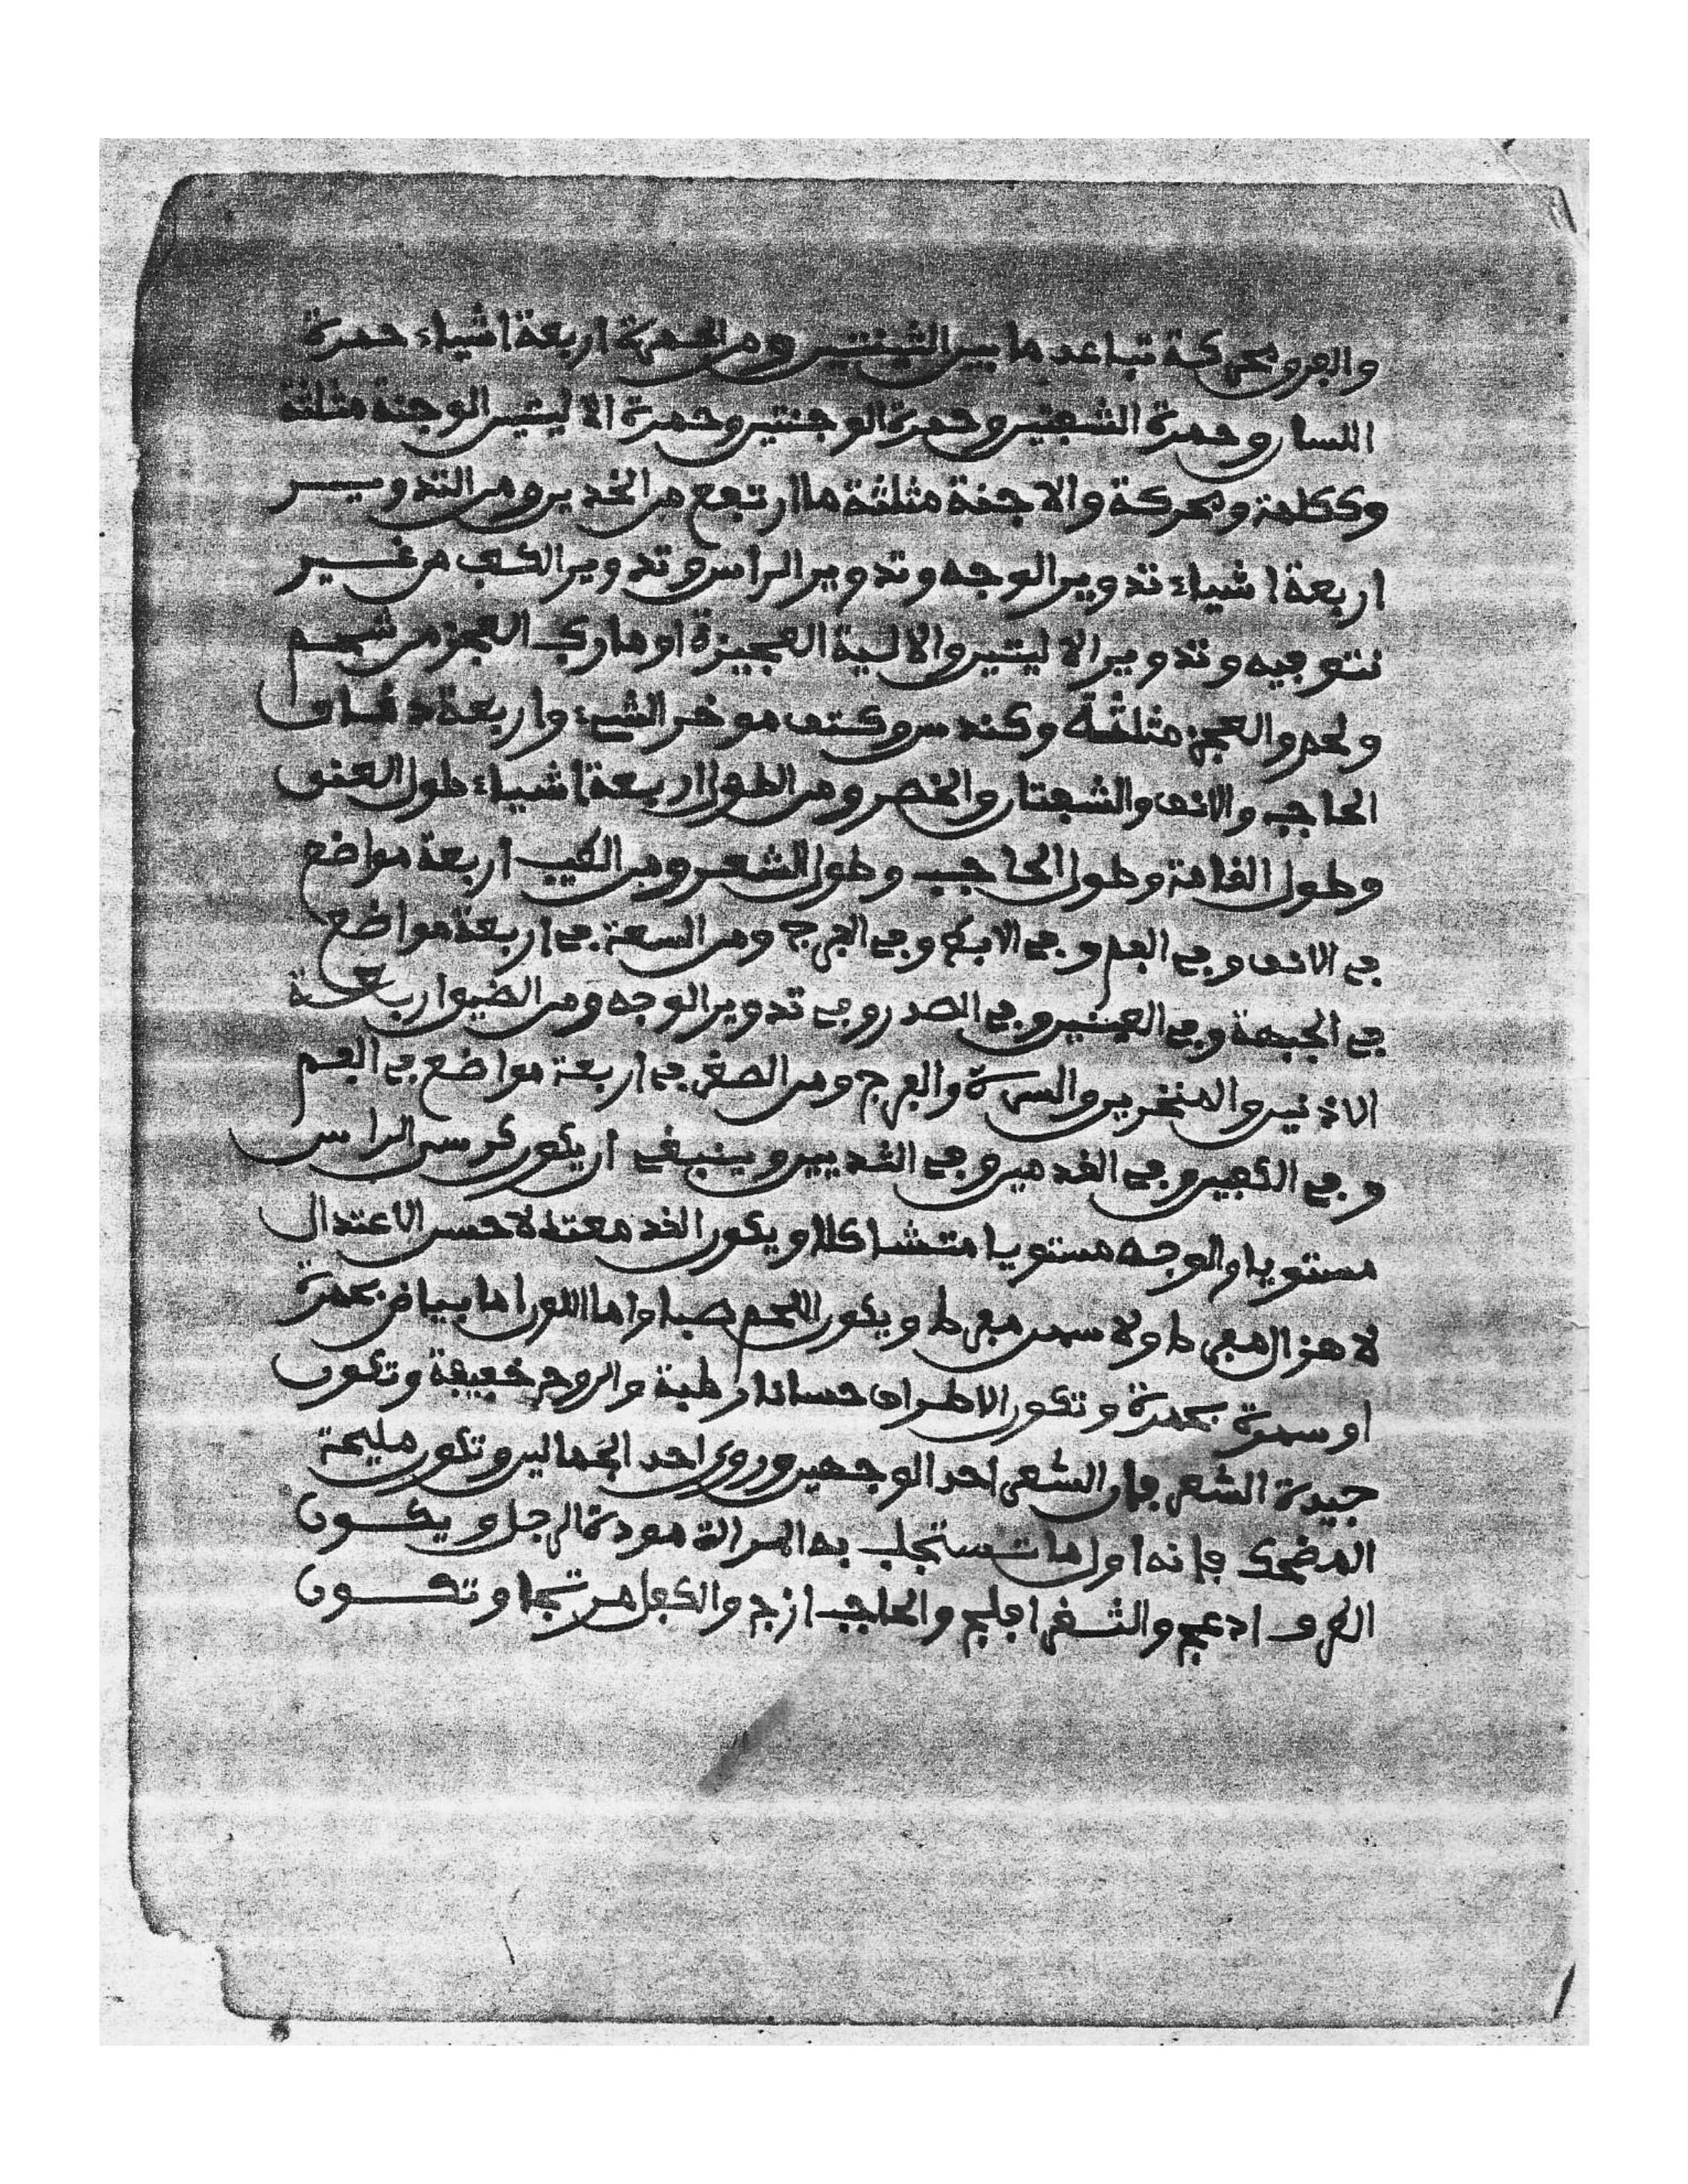 والفرق محركة تباعد ما بين الثنيتين ومن الحمرة اربعة اشياء حمرة
اللسان وحمرة الشفتين وحمرة الوجنتين وحمرة الاليتين الوجنة مثلثة
وككلمة ومحركة والاجنة مثلثة ما ارتفع من الخدين ومن التدويـــر
اربعة اشياء تدوير الوجه وتدوير الراس وتدوير الكعب من غيـــر
نتو فيه وتدوير الاليتين والالية العجيزة او ما ركب العجز من شحـم
ولحم والعجز مثلثة وكندس وكتف موخر الشيء واربعة دقـاق
الحاجب والانف والشفتان والخصر ومن الطول اربعة اشياء طول العنق
وطول القامة وطول الحاجب وطول الشعر ومن الطيب اربعة مواضع
في الانف وفي الفم وفي الابط وفي الفرج ومن السعة في اربعة مواضع
في الجبهة وفي العينين وفي الصدر وفي تدوير الوجه ومن الضيق اربعـة
الاذنين والمنخرين والسرة والفرج ومن الصغر في اربعة مواضع في الفم
وفي الكفين وفي القدمين وفي الثديين وينبغي ان يكون كرسي الراس
مستويا والوجه مستويا متشاكلا ويكون القد معتدلا حسن الاعتدال
لا هزال مفرط ولا سمن مفرط ويكون اللحم صبا واما اللون اما بياض بحمرة
او سمرة بحمرة وتكون الاطراف حسانا رطبة والروح خفيفة وتكون
جيدة الشعر فان الشعر احد الوجهين وروي احد الجمالين وتكون مليحة
المضحك فانه اول ما تستجلب به المراة مودة الرجل ويكـــون
الطرف ادعج والثـغر افلج والحاجب ازج والكفل مرتجا وتكـــون